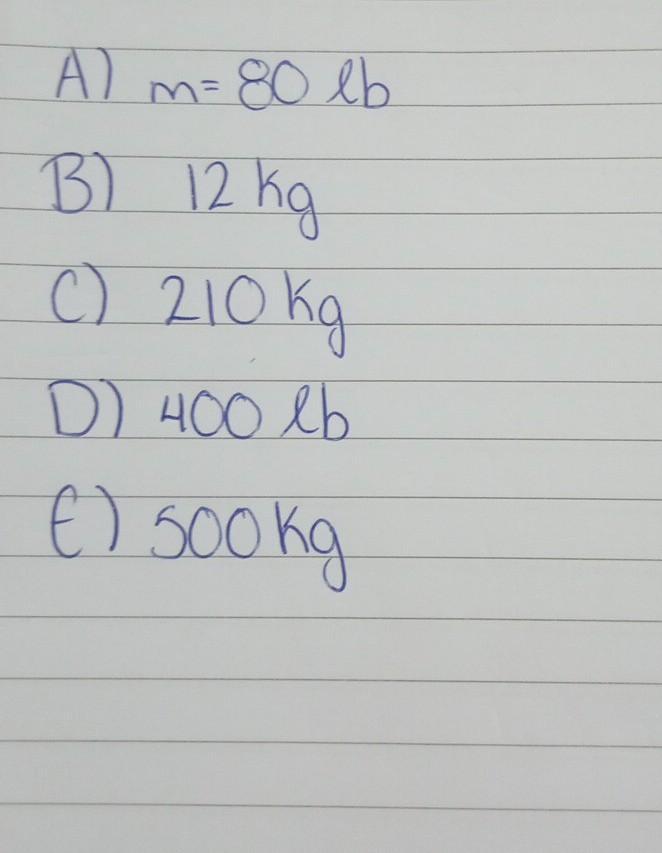 A) m= 80 lb
B) 12 kg
C) 210 kg
D) 400 lb
E) 500 kg